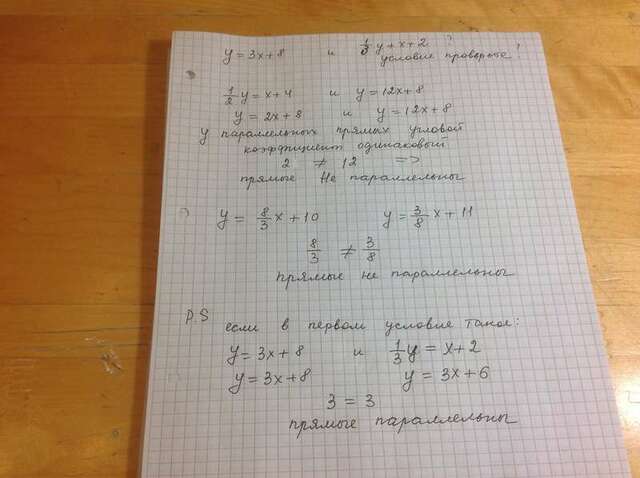 y = 3x + 8 и 1/3 y + x + 2 ?
условие проверьте!
)
1/2 y = x + 4 и y = 12x + 8
y = 2x + 8 и y = 12x + 8
У параллельных прямых угловой
коэффициент одинаковый
2 ≠ 12 =>
прямые не параллельны
) y = 8/3 x + 10 y = 3/8 x + 11
8/3 ≠ 3/8
прямые не параллельны
P.S если в первом условие такое:
y = 3x + 8 и 1/3 y = x + 2
y = 3x + 8 y = 3x + 6
3 = 3
прямые параллельны